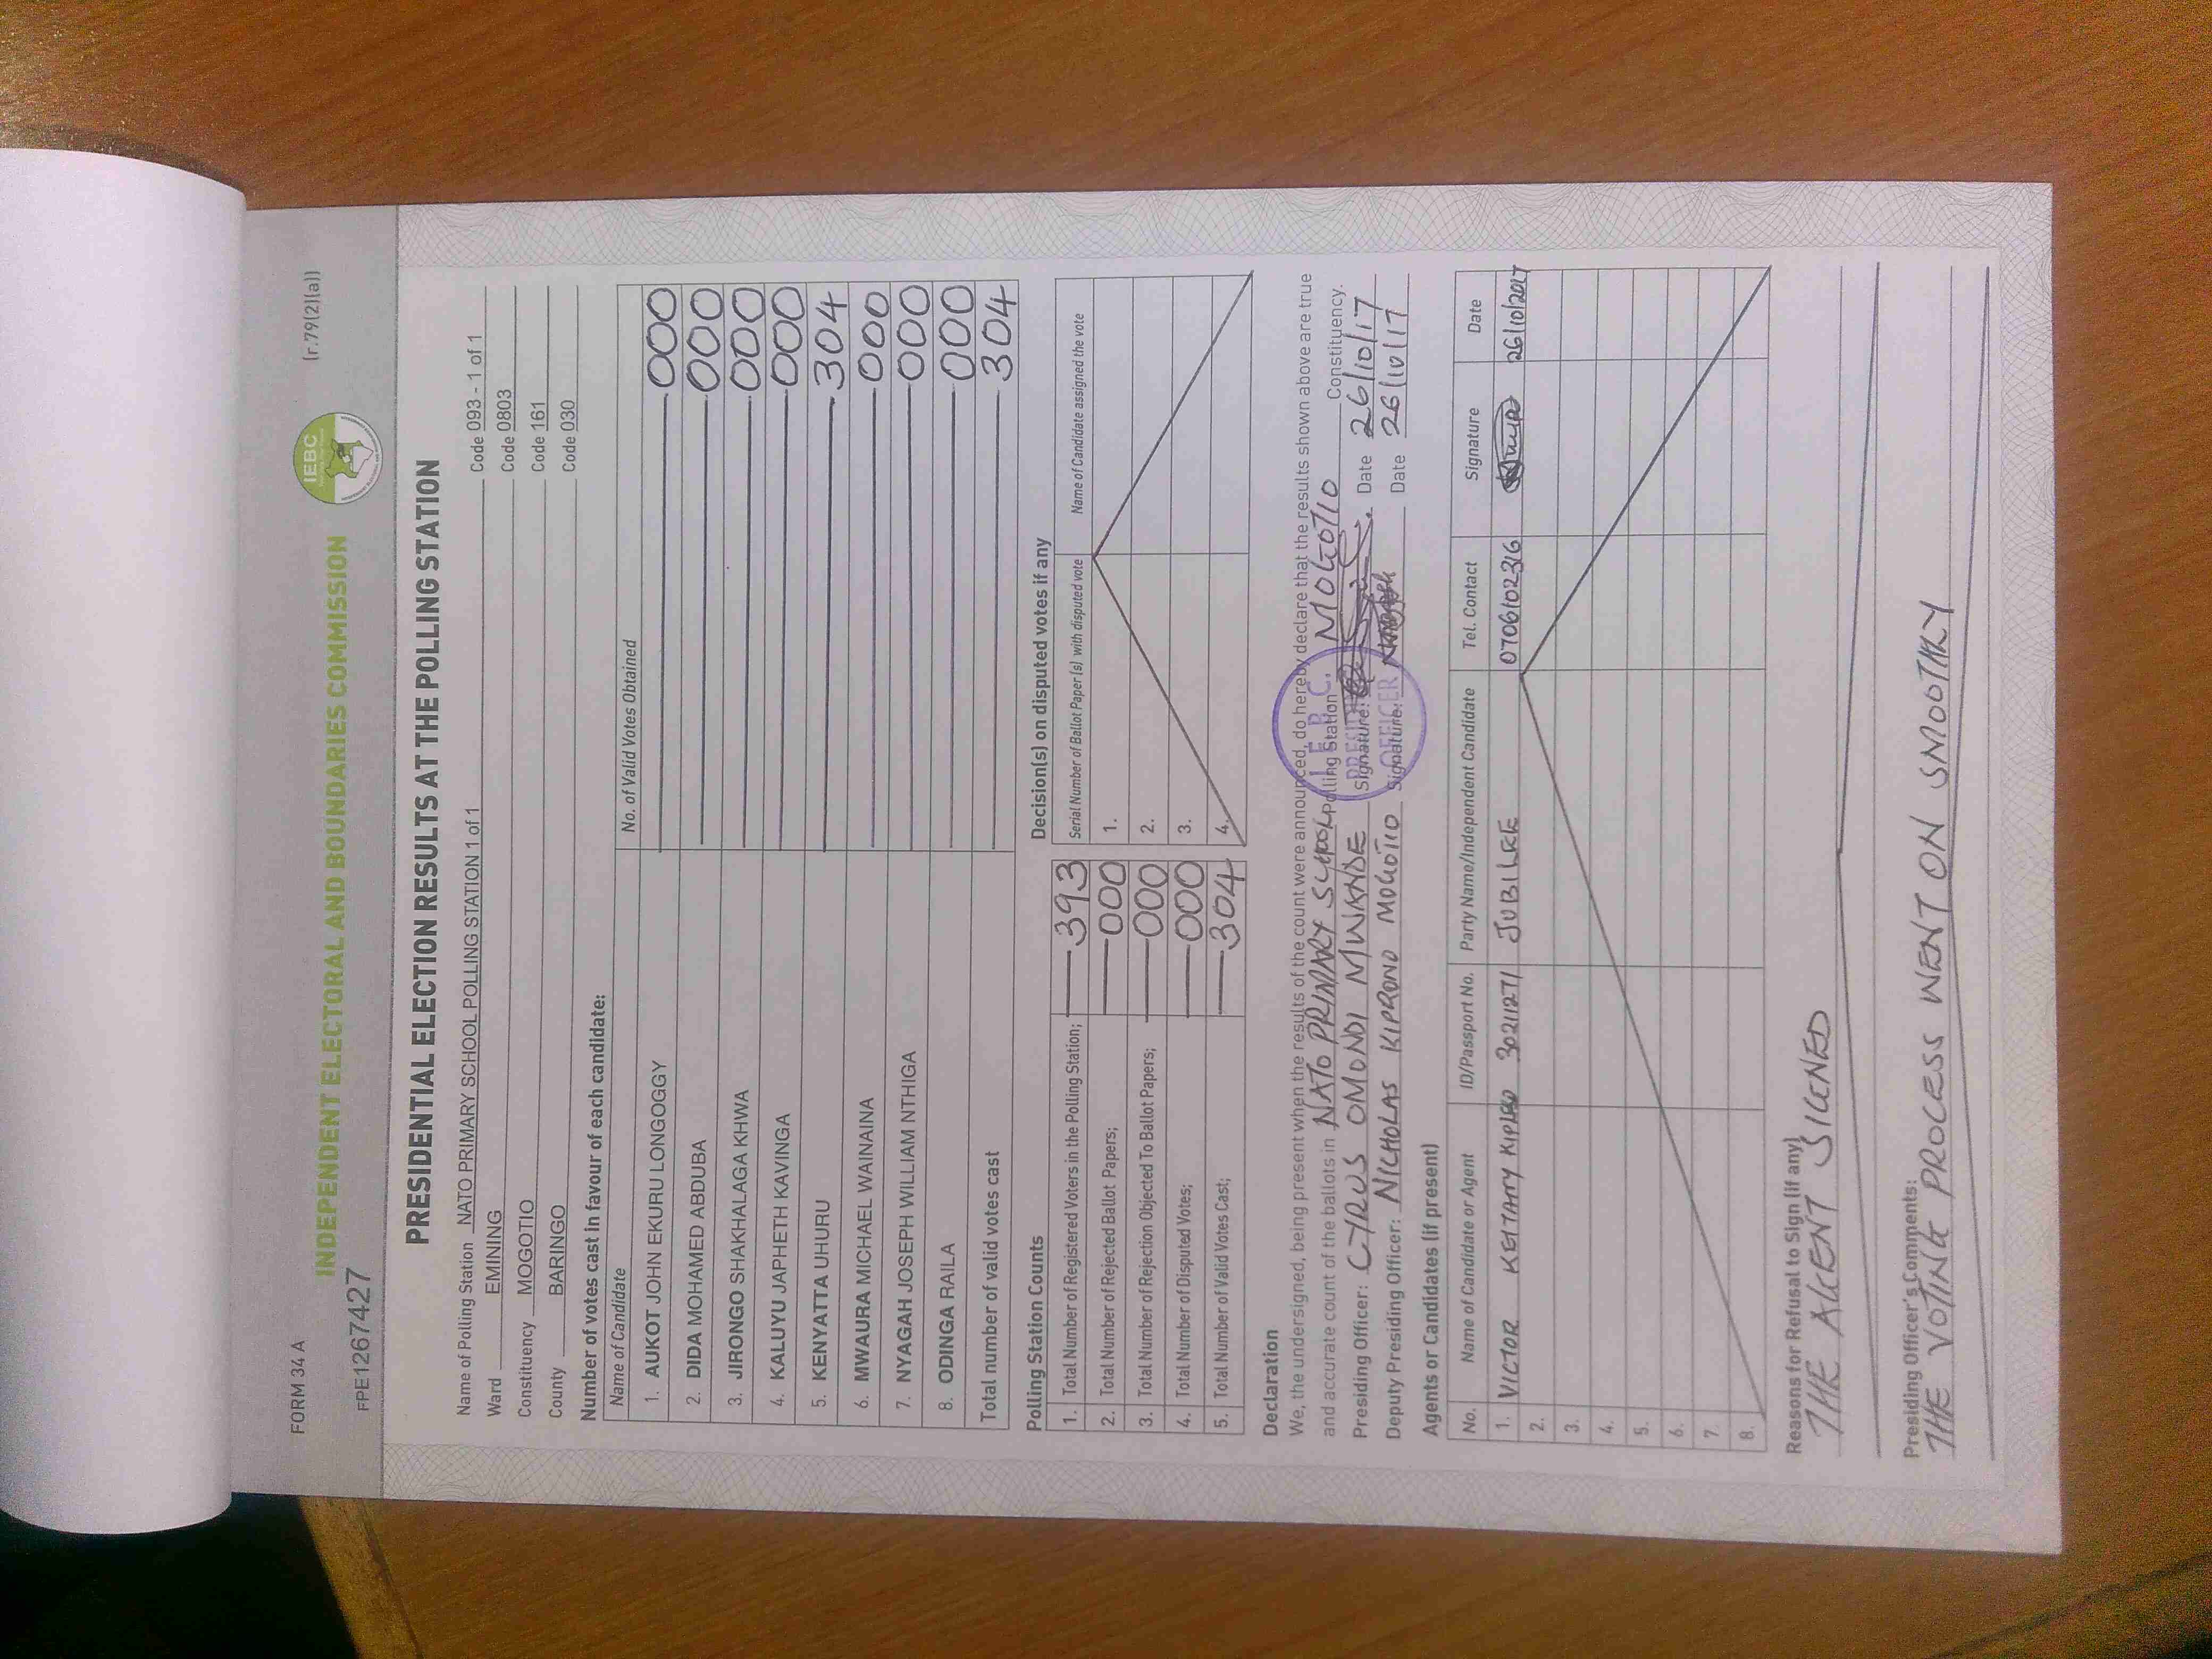 FORM 34 A
(r.79(2)(a))
INDEPENDENT ELECTORAL AND BOUNDARIES COMMISSION
IEBC
FPE1267427
PRESIDENTIAL ELECTION RESULTS AT THE POLLING STATION
Name of Polling Station NATO PRIMARY SCHOOL POLLING STATION 1 of 1 Code 093 - 1 of 1
Ward EMINING Code 0803
Constituency MOGOTIO Code 161
County BARINGO Code 030
Number of votes cast in favour of each candidate:
Name of Candidate No. of Valid Votes Obtained
1. AUKOT JOHN EKURU LONGOGGY 000
2. DIDA MOHAMED ABDUBA 000
3. JIRONGO SHAKHALAGA KHWA 000
4. KALUYU JAPHETH KAVINGA 000
5. KENYATTA UHURU 304
6. MWAURA MICHAEL WAINAINA 000
7. NYAGAH JOSEPH WILLIAM NTHIGA 000
8. ODINGA RAILA 000
Total number of valid votes cast 304
Polling Station Counts
1. Total Number of Registered Voters in the Polling Station; 393
2. Total Number of Rejected Ballot Papers; 000
3. Total Number of Rejection Objected To Ballot Papers; 000
4. Total Number of Disputed Votes; 000
5. Total Number of Valid Votes Cast; 304
Decision(s) on disputed votes if any
Serial Number of Ballot Paper(s) with disputed vote Name of Candidate assigned the vote
1.
2.
3.
4.
Declaration
We, the undersigned, being present when the results of the count were announced, do hereby declare that the results shown above are true
and accurate count of the ballots in NATO PRIMARY SCHOOL Polling Station MOGOTIO Constituency.
Presiding Officer: CYRUS OMONDI MWANDE Signature: Date 26/10/17
Deputy Presiding Officer: NICHOLAS KIPRONO MOGOTIO Signature: Date 26/10/17
I.E.B.C.
PRESIDING
OFFICER
Agents or Candidates (if present)
No. Name of Candidate or Agent ID/Passport No. Party Name/Independent Candidate Tel. Contact Signature Date
1. VICTOR KEITANY 30211271 JUBILEE 0706102316 26/10/2017
2.
3.
4.
5.
6.
7.
8.
Reasons for Refusal to Sign (if any)
THE AGENT SIGNED
Presiding Officer's Comments:
THE VOTING PROCESS WENT ON SMOOTHLY